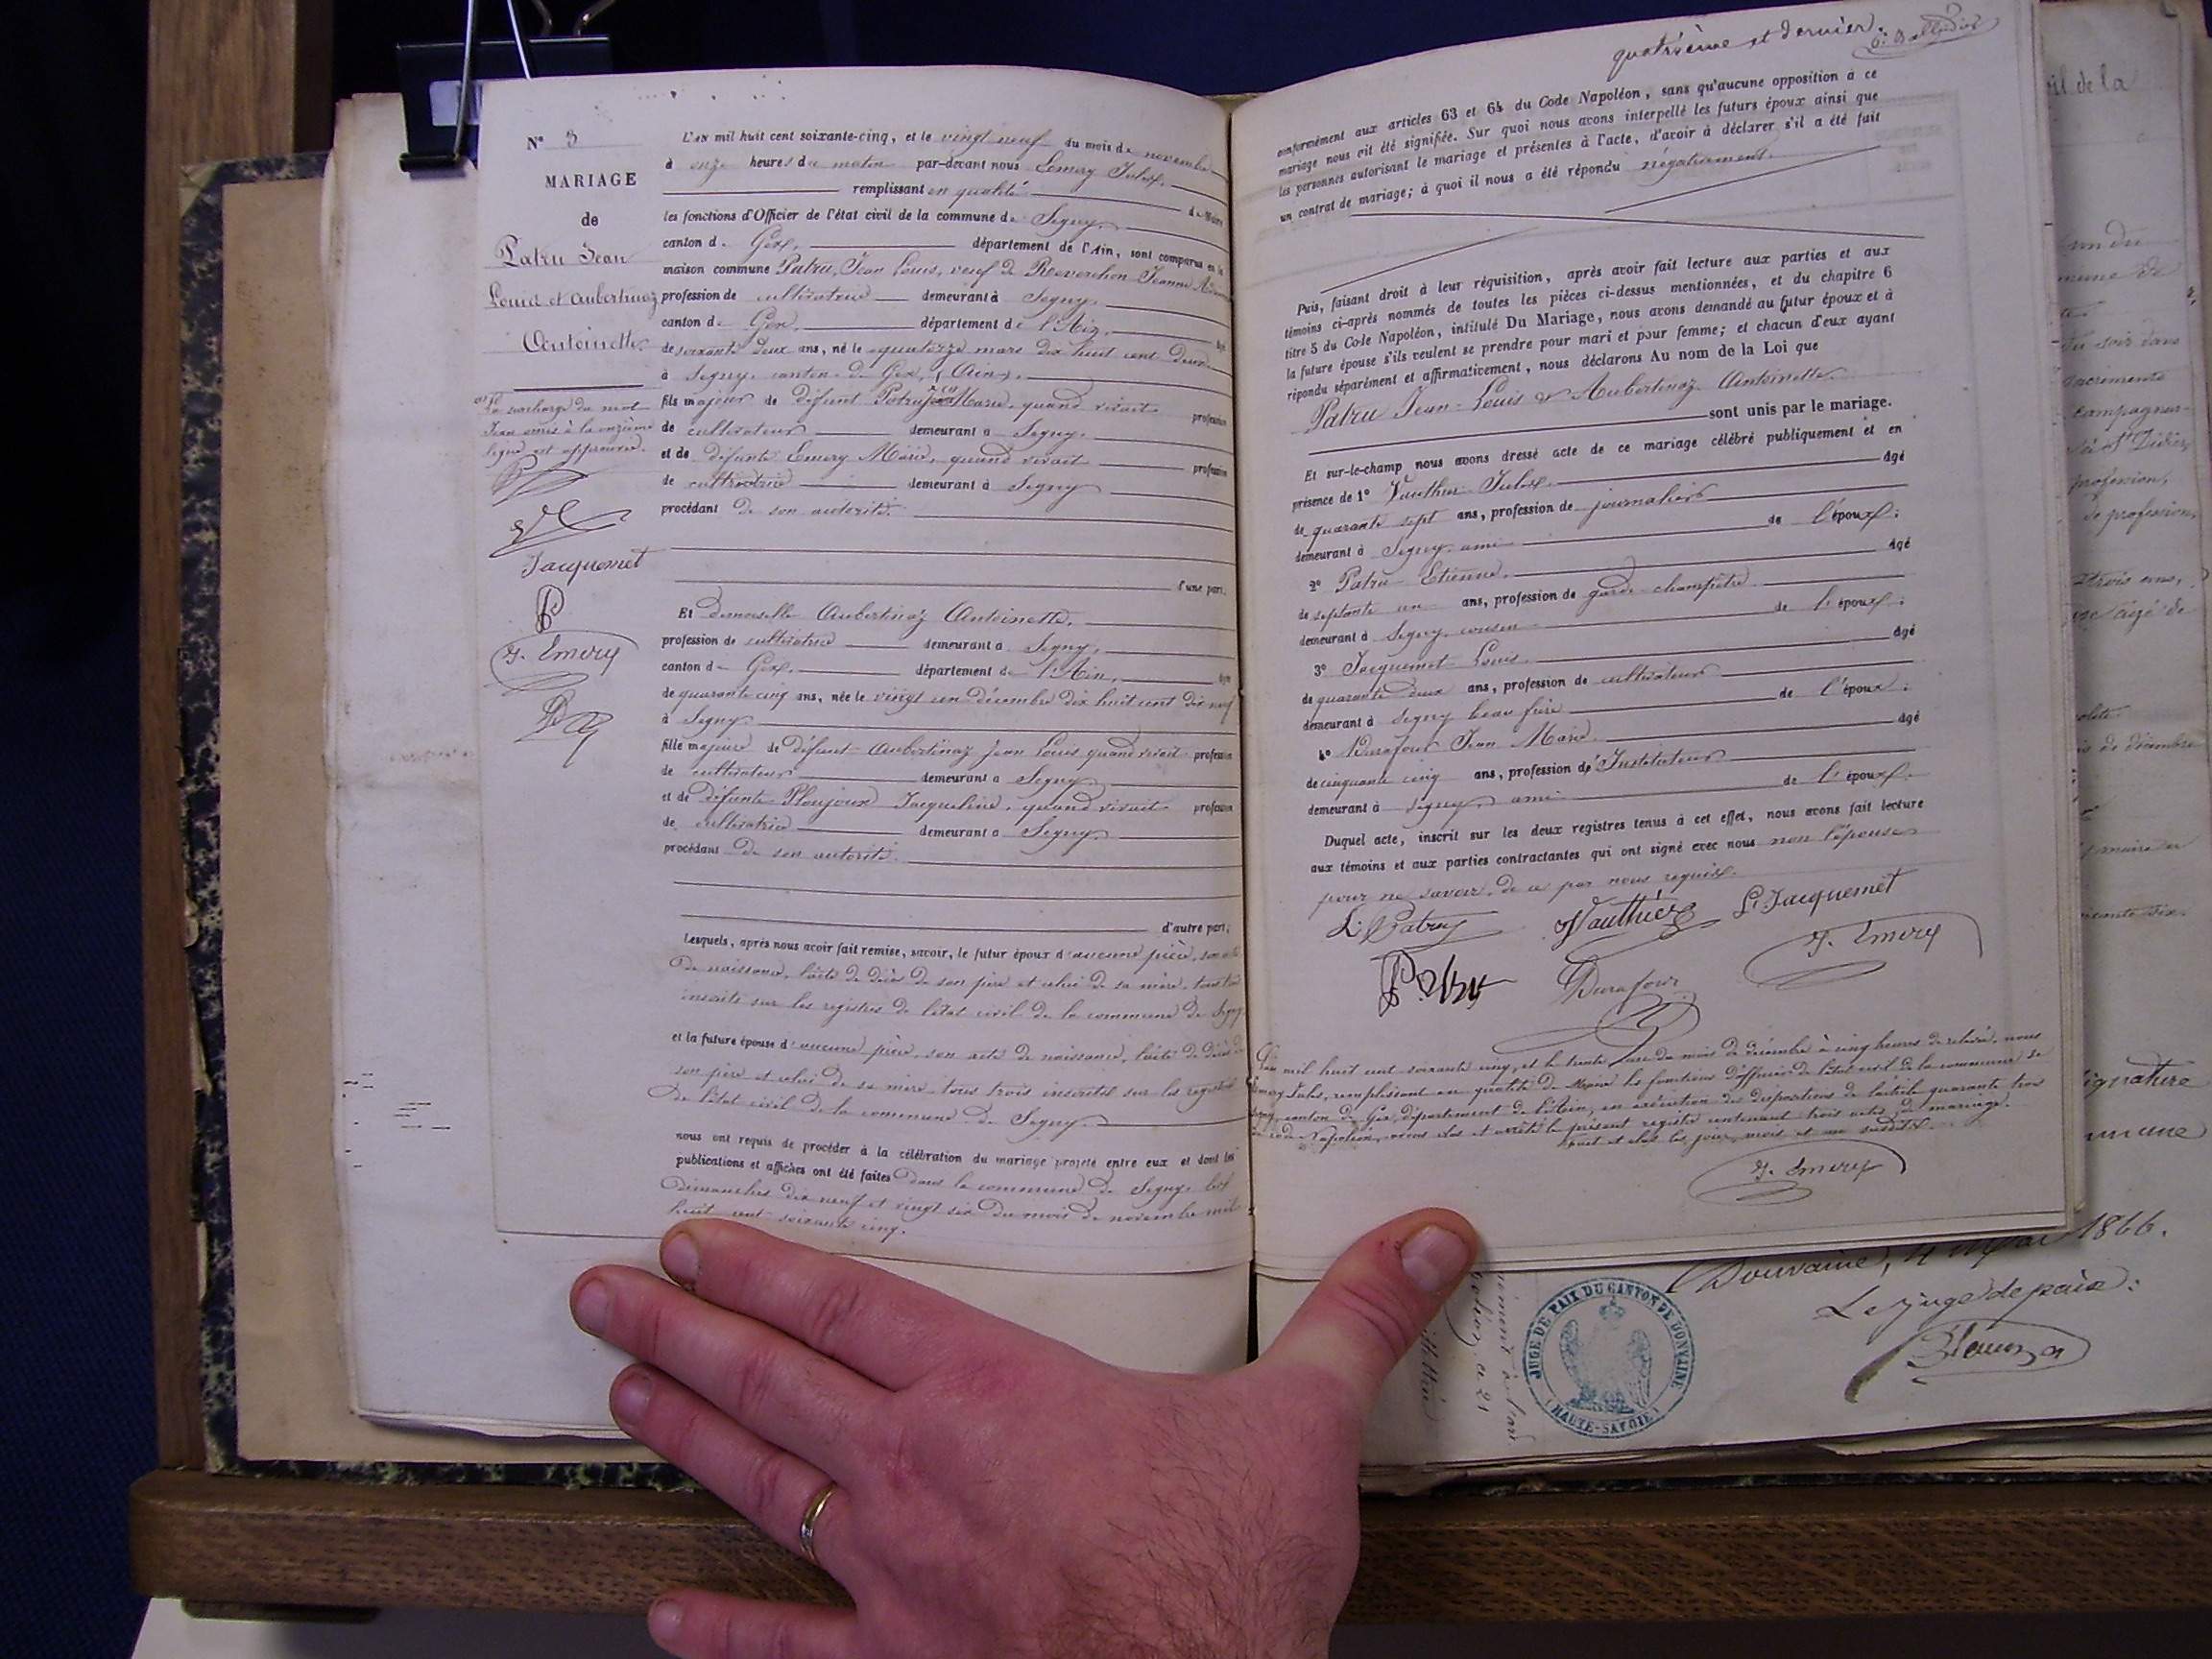 N° 3
MARIAGE
de
Patru Jean
Louis et Aubertinaz
Antoinette
La surcharge du mot
Jean émis à la onzième
ligne est approuvée.
Jacquemet
J. Emery
L'an mil huit cent soixante-cinq, et le vingt neuf du mois de novembre
à onze heures du matin par-devant nous Emery Jules,
remplissant en qualité de Maire
les fonctions d'Officier de l'état civil de la commune de Segny
canton de Gex, département de l'Ain, sont comparus en la
maison commune Patru, Jean Louis, veuf de Reverchon Jeanne
profession de cultivateur demeurant à Segny
canton de Gex, département de l'Ain, âgé
de soixante deux ans, né le quatorze mars dix huit cent deux
à Segny, canton de Gex, (Ain),
fils majeur de défunt Patru Jean Marie, quand vivait profession
de cultivateur demeurant à Segny,
et de défunte Emery Marie, quand vivait profession
de cultivatrice demeurant à Segny
procédant de son autorité.
d'une part.
Et demoiselle Aubertinaz Antoinette,
profession de cultivatrice demeurant à Segny,
canton de Gex, département de l'Ain, âgée
de quarante cinq ans, née le vingt un décembre dix huit cent dix neuf
à Segny
fille majeure de défunt Aubertinaz Jean Louis quand vivait profession
de cultivateur demeurant à Segny
et de défunte Ploujoux Jacqueline, quand vivait profession
de cultivatrice demeurant à Segny
procédant de son autorité.
d'autre part;
Lesquels, après nous avoir fait remise, savoir, le futur époux d'aucune pièce, son acte
de naissance, l'acte de décès de son père et celui de sa mère, tous trois
inscrits sur les registres de l'état civil de la commune de Segny
et la future épouse d'aucune pièce, son acte de naissance, l'acte de décès de
son père et celui de sa mère tous trois inscrits sur les registres
de l'état civil de la commune de Segny
nous ont requis de procéder à la célébration du mariage projeté entre eux et dont les
publications et affiches ont été faites dans la commune de Segny les
dimanches dix neuf et vingt six du mois de novembre mil
huit cent soixante cinq.
quatrième et dernier.
conformément aux articles 63 et 64 du Code Napoléon, sans qu'aucune opposition à ce
mariage nous ait été signifiée. Sur quoi nous avons interpellé les futurs époux ainsi que
les personnes autorisant le mariage et présentes à l'acte, d'avoir à déclarer s'il a été fait
un contrat de mariage; à quoi il nous a été répondu négativement.
Puis, faisant droit à leur réquisition, après avoir fait lecture aux parties et aux
témoins ci-après nommés de toutes les pièces ci-dessus mentionnées, et du chapitre 6
titre 5 du Code Napoléon, intitulé Du Mariage, nous avons demandé au futur époux et à
la future épouse s'ils veulent se prendre pour mari et pour femme; et chacun d'eux ayant
répondu séparément et affirmativement, nous déclarons Au nom de la Loi que
Patru Jean-Louis & Aubertinaz Antoinette
sont unis par le mariage.
Et sur-le-champ nous avons dressé acte de ce mariage célébré publiquement et en
présence de 1° Vauthier Jules âgé
de quarante sept ans, profession de journalier
demeurant à Segny, ami de l'époux;
2° Patru Etienne, âgé
de septante un ans, profession de garde champêtre
demeurant à Segny, cousin de l'époux;
3° Jacquemet Louis âgé
de quarante deux ans, profession de cultivateur
demeurant à Segny beau frère de l'époux;
4° Durafour Jean Marie âgé
de cinquante cinq ans, profession d'Instituteur
demeurant à Segny, ami de l'époux.
Duquel acte, inscrit sur les deux registres tenus à cet effet, nous avons fait lecture
aux témoins et aux parties contractantes qui ont signé avec nous non l'épouse
pour ne savoir, de ce par nous requise.
L. Patru Vauthier L. Jacquemet
J. Emery
Durafour
L'an mil huit cent soixante cinq, et le trente un du mois de décembre à cinq heures de relevée, nous
Emery Jules, remplissant en qualité de Maire les fonctions d'officier de l'état civil de la commune de
Segny, canton de Gex, département de l'Ain, en exécution des dispositions de l'article quarante trois
du code Napoléon, avons clos et arrêté le présent registre contenant trois actes de mariage.
Fait et clos les jour, mois et an susdits.
J. Emery
Douvaine, 4 1866.
Le Juge de paix:
JUGE DE PAIX DU CANTON DE DOUVAINE
(HAUTE-SAVOIE)